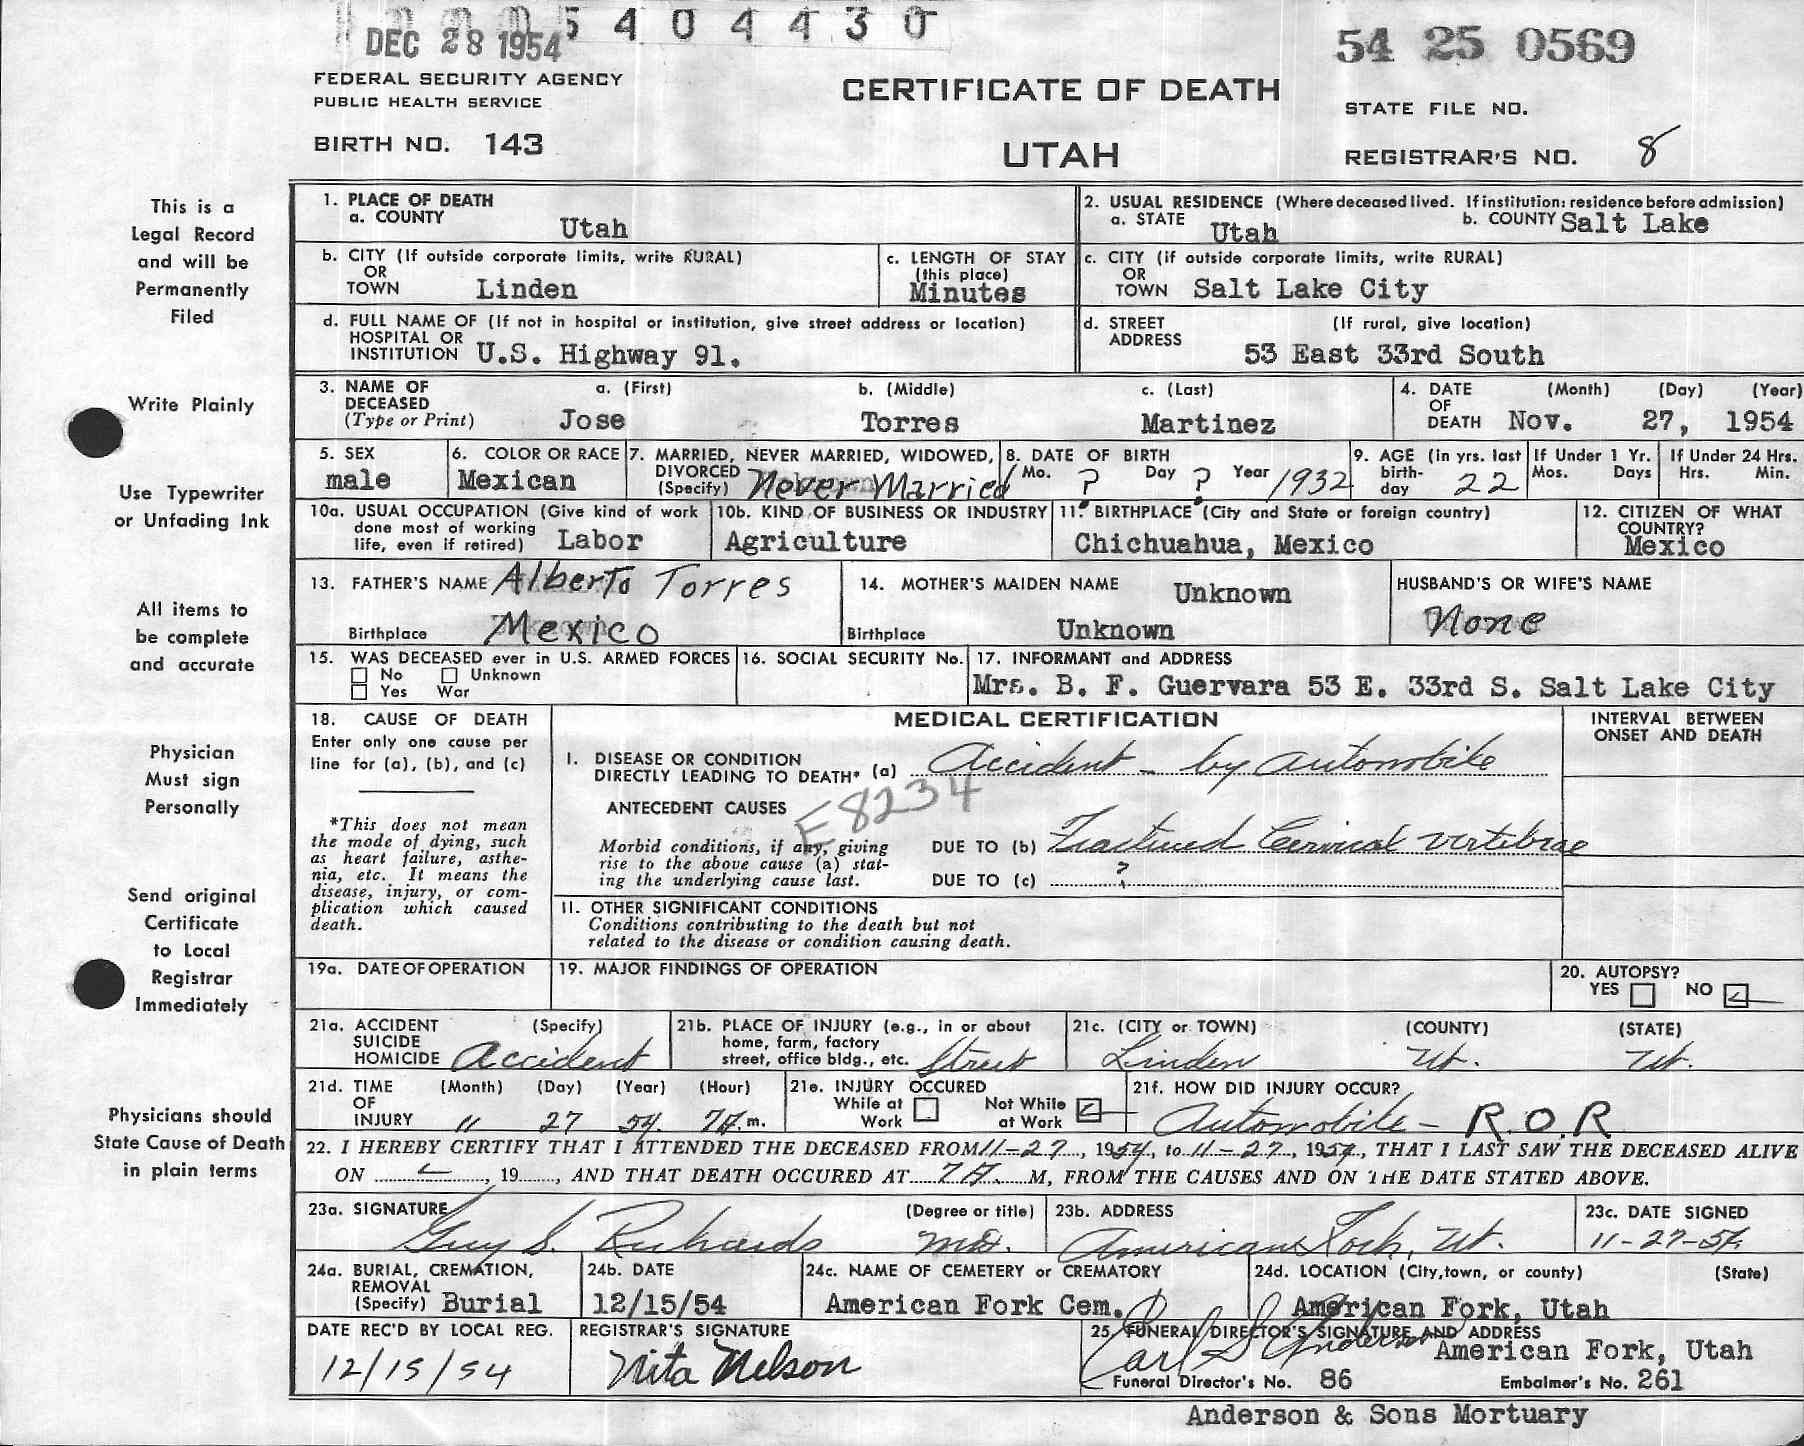 DEC 28 1954
5 4 0 4 4 3 0
54 25 0569
FEDERAL SECURITY AGENCY
PUBLIC HEALTH SERVICE
BIRTH NO. 143
CERTIFICATE OF DEATH
UTAH
STATE FILE NO.
REGISTRAR'S NO. 8
This is a
Legal Record
and will be
Permanently
Filed
Write Plainly
Use Typewriter
or Unfading Ink
All items to
be complete
and accurate
Physician
Must sign
Personally
Send original
Certificate
to Local
Registrar
Immediately
Physicians should
State Cause of Death
in plain terms
1. PLACE OF DEATH
a. COUNTY Utah
2. USUAL RESIDENCE (Where deceased lived. If institution: residence before admission)
a. STATE Utah b. COUNTY Salt Lake
b. CITY (If outside corporate limits, write RURAL)
OR
TOWN Linden
c. LENGTH OF STAY
(this place)
Minutes
c. CITY (if outside corporate limits, write RURAL)
OR
TOWN Salt Lake City
d. FULL NAME OF (If not in hospital or institution, give street address or location)
HOSPITAL OR
INSTITUTION U.S. Highway 91.
d. STREET (If rural, give location)
ADDRESS
53 East 33rd South
3. NAME OF a. (First) b. (Middle) c. (Last)
DECEASED
(Type or Print) Jose Torres Martinez
4. DATE (Month) (Day) (Year)
OF
DEATH Nov. 27, 1954
5. SEX
male
6. COLOR OR RACE
Mexican
7. MARRIED, NEVER MARRIED, WIDOWED,
DIVORCED
(Specify) Never Married
8. DATE OF BIRTH
Mo. ? Day ? Year 1932
9. AGE (in yrs. last
birth-
day 22
If Under 1 Yr.
Mos. Days
If Under 24 Hrs.
Hrs. Min.
10a. USUAL OCCUPATION (Give kind of work
done most of working
life, even if retired) Labor
10b. KIND OF BUSINESS OR INDUSTRY
Agriculture
11. BIRTHPLACE (City and State or foreign country)
Chichuahua, Mexico
12. CITIZEN OF WHAT
COUNTRY?
Mexico
13. FATHER'S NAME Alberto Torres
Birthplace Mexico
14. MOTHER'S MAIDEN NAME Unknown
Birthplace Unknown
HUSBAND'S OR WIFE'S NAME
None
15. WAS DECEASED ever in U.S. ARMED FORCES
No Unknown
Yes War
16. SOCIAL SECURITY No.
17. INFORMANT and ADDRESS
Mrs. B. F. Guervara 53 E. 33rd S. Salt Lake City
18. CAUSE OF DEATH
Enter only one cause per
line for (a), (b), and (c)
*This does not mean
the mode of dying, such
as heart failure, asthe-
nia, etc. It means the
disease, injury, or com-
plication which caused
death.
MEDICAL CERTIFICATION
INTERVAL BETWEEN
ONSET AND DEATH
I. DISEASE OR CONDITION
DIRECTLY LEADING TO DEATH* (a) Accident - by automobile
ANTECEDENT CAUSES
E8234
Morbid conditions, if any, giving
rise to the above cause (a) stat-
ing the underlying cause last.
DUE TO (b) Fractured Cervical vertebrae
DUE TO (c) ?
II. OTHER SIGNIFICANT CONDITIONS
Conditions contributing to the death but not
related to the disease or condition causing death.
19a. DATE OF OPERATION
19. MAJOR FINDINGS OF OPERATION
20. AUTOPSY?
YES NO
21a. ACCIDENT (Specify)
SUICIDE
HOMICIDE Accident
21b. PLACE OF INJURY (e.g., in or about
home, farm, factory
street, office bldg., etc. Street
21c. (CITY or TOWN) (COUNTY) (STATE)
Linden Ut. Ut.
21d. TIME (Month) (Day) (Year) (Hour)
OF
INJURY 11 27 54 7A.m.
21e. INJURY OCCURED
While at Work
Not While at Work
21f. HOW DID INJURY OCCUR?
Automobile - R.O.R
22. I HEREBY CERTIFY THAT I ATTENDED THE DECEASED FROM 11-27, 1954, to 11-27, 1954, THAT I LAST SAW THE DECEASED ALIVE
ON , 19 , AND THAT DEATH OCCURED AT 7A. M, FROM THE CAUSES AND ON THE DATE STATED ABOVE.
23a. SIGNATURE (Degree or title)
Guy S. Richards MD.
23b. ADDRESS
American Fork, Ut.
23c. DATE SIGNED
11-27-54
24a. BURIAL, CREMATION,
REMOVAL
(Specify) Burial
24b. DATE
12/15/54
24c. NAME OF CEMETERY or CREMATORY
American Fork Cem.
24d. LOCATION (City, town, or county) (State)
American Fork, Utah
DATE REC'D BY LOCAL REG.
12/15/54
REGISTRAR'S SIGNATURE
Nita Nelson
25. FUNERAL DIRECTOR'S SIGNATURE AND ADDRESS
Carl S Anderson American Fork, Utah
Funeral Director's No. 86 Embalmer's No. 261
Anderson & Sons Mortuary